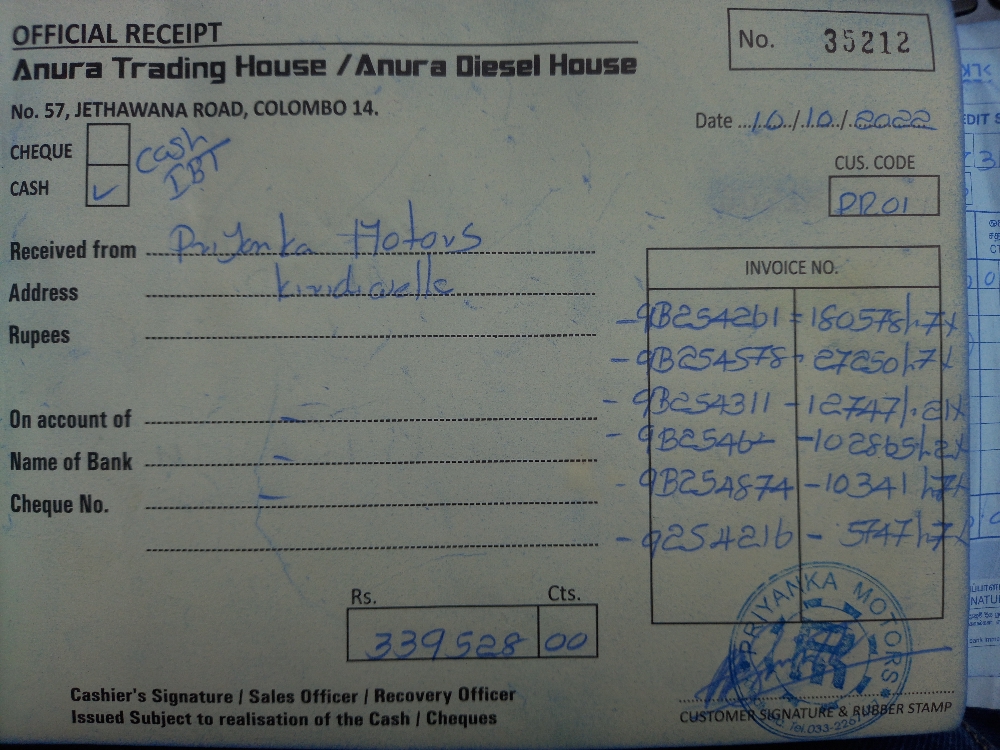 OFFICIAL RECEIPT
Anura Trading House / Anura Diesel House
No. 57, JETHAWANA ROAD, COLOMBO 14.
No. 35212
Date 10/10/2022
CHEQUE
CASH ✓
Cash
IBT
CUS. CODE
PR01
Received from Priyanka Motors
Address kiridiwella
Rupees
On account of –
Name of Bank –
Cheque No. –
INVOICE NO.
- 9B254261 = 180578/-7x
- 9B254578 - 27250/-7x
- 9B254311 - 12747/-21x
- 9B25462 - 102865/-2x
- 9B254874 - 10341/-7x
- 9254216 - 5747/-7x
Rs. Cts.
339528 00
PRIYANKA MOTORS
Tel.033-226
Cashier's Signature / Sales Officer / Recovery Officer
Issued Subject to realisation of the Cash / Cheques
CUSTOMER SIGNATURE & RUBBER STAMP